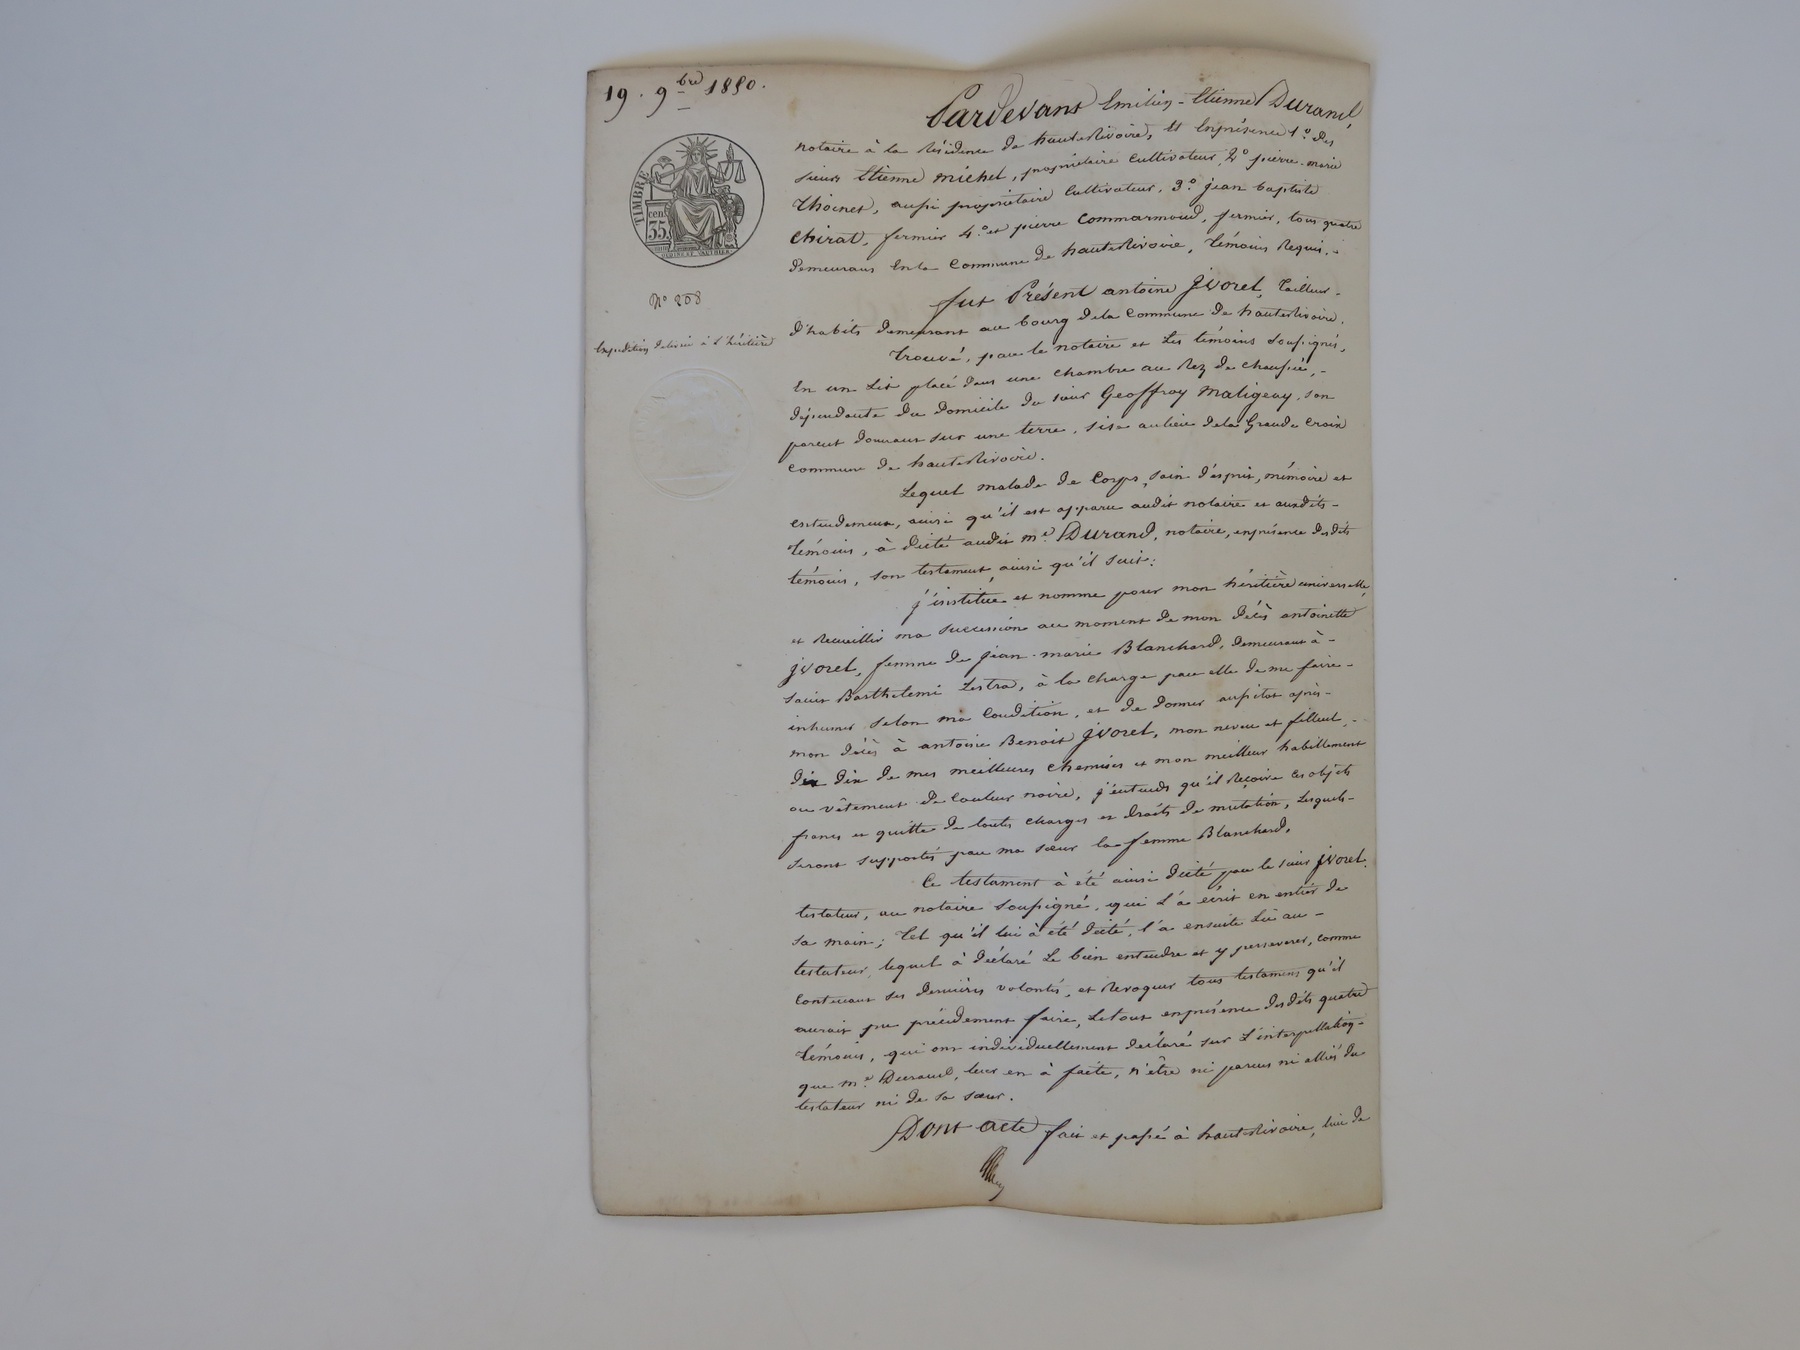 19. 9bre 1850.
TIMBRE
35 cen
N° 208
Expédition délivrée à l'héritière
Pardevant Emilien-Etienne Durand,
notaire à la Résidence de hauteRivoire, Et Enprésence 1° des
sieurs Etienne michel, propriétaire cultivateur, 2° pierre-marie
Thoinet, aussi propriétaire Cultivateur, 3° jean baptiste
Chirat, fermier 4° et pierre Commarmond, fermier, tous quatre
demeurans En la Commune de hauteRivoire, Témoins Requis.-
fut Présent antoine jvoret, Tailleur-
d'habits demeurant au bourg dela Commune de hauteRivoire.
Trouvé, par le notaire et Les témoins Soussignés,
En un Lit placé dans une chambre au Rez de chaussée,-
dépendante du domicile du sieur Geoffray Maligeay, son
parent donnant sur une terre, sise aulieu dela Grande Croix
commune de hauteRivoire.
Lequel malade de Corps, sain d'esprit, mémoire et
entendement, ainsi qu'il est apparu audit notaire et auxdits-
Témoins, à dicté audit me Durand, notaire, enprésence desdits
témoins, son testament ainsi qu'il suit:
j'institue et nomme pour mon héritière universelle,
et Recueillir ma succession au moment de mon décès antoinette
jvoret, femme de jean-marie Blanchard, demeurant à-
saint Barthelemi Lestra, à la charge par elle de me faire-
inhumer selon ma Condition, et de donner aussitot après-
mon décès à antoine Benoit jvoret, mon neveu et filleul,-
dix de mes meilleures chemises et mon meilleur habillement
ou vêtement de Couleur noire, j'entends qu'il Reçoive ces objets
francs et quitte de toutes charges et droits de mutation, Lesquels-
seront supportés par ma sœur la femme Blanchard.
Ce testament à été ainsi dicté par le sieur jvoret
testateur, au notaire soussigné, qui L'a écrit en entier de
sa main; Tel qu'il lui à été dicté, l'a ensuite Lu au-
testateur, lequel à déclaré Le bien entendre et y perseverer, comme
Contenant ses dernières volontés, et Revoquer tous testamens qu'il
aurait pu précédement faire, Letout enprésence desdits quatre
témoins, qui ont individuellement déclaré sur L'interpellation-
que me Durand, leur en à faite, n'être ni parens ni alliés du
testateur ni de sa sœur.
Dont acte fait et passé à hauteRivoire, lieu de